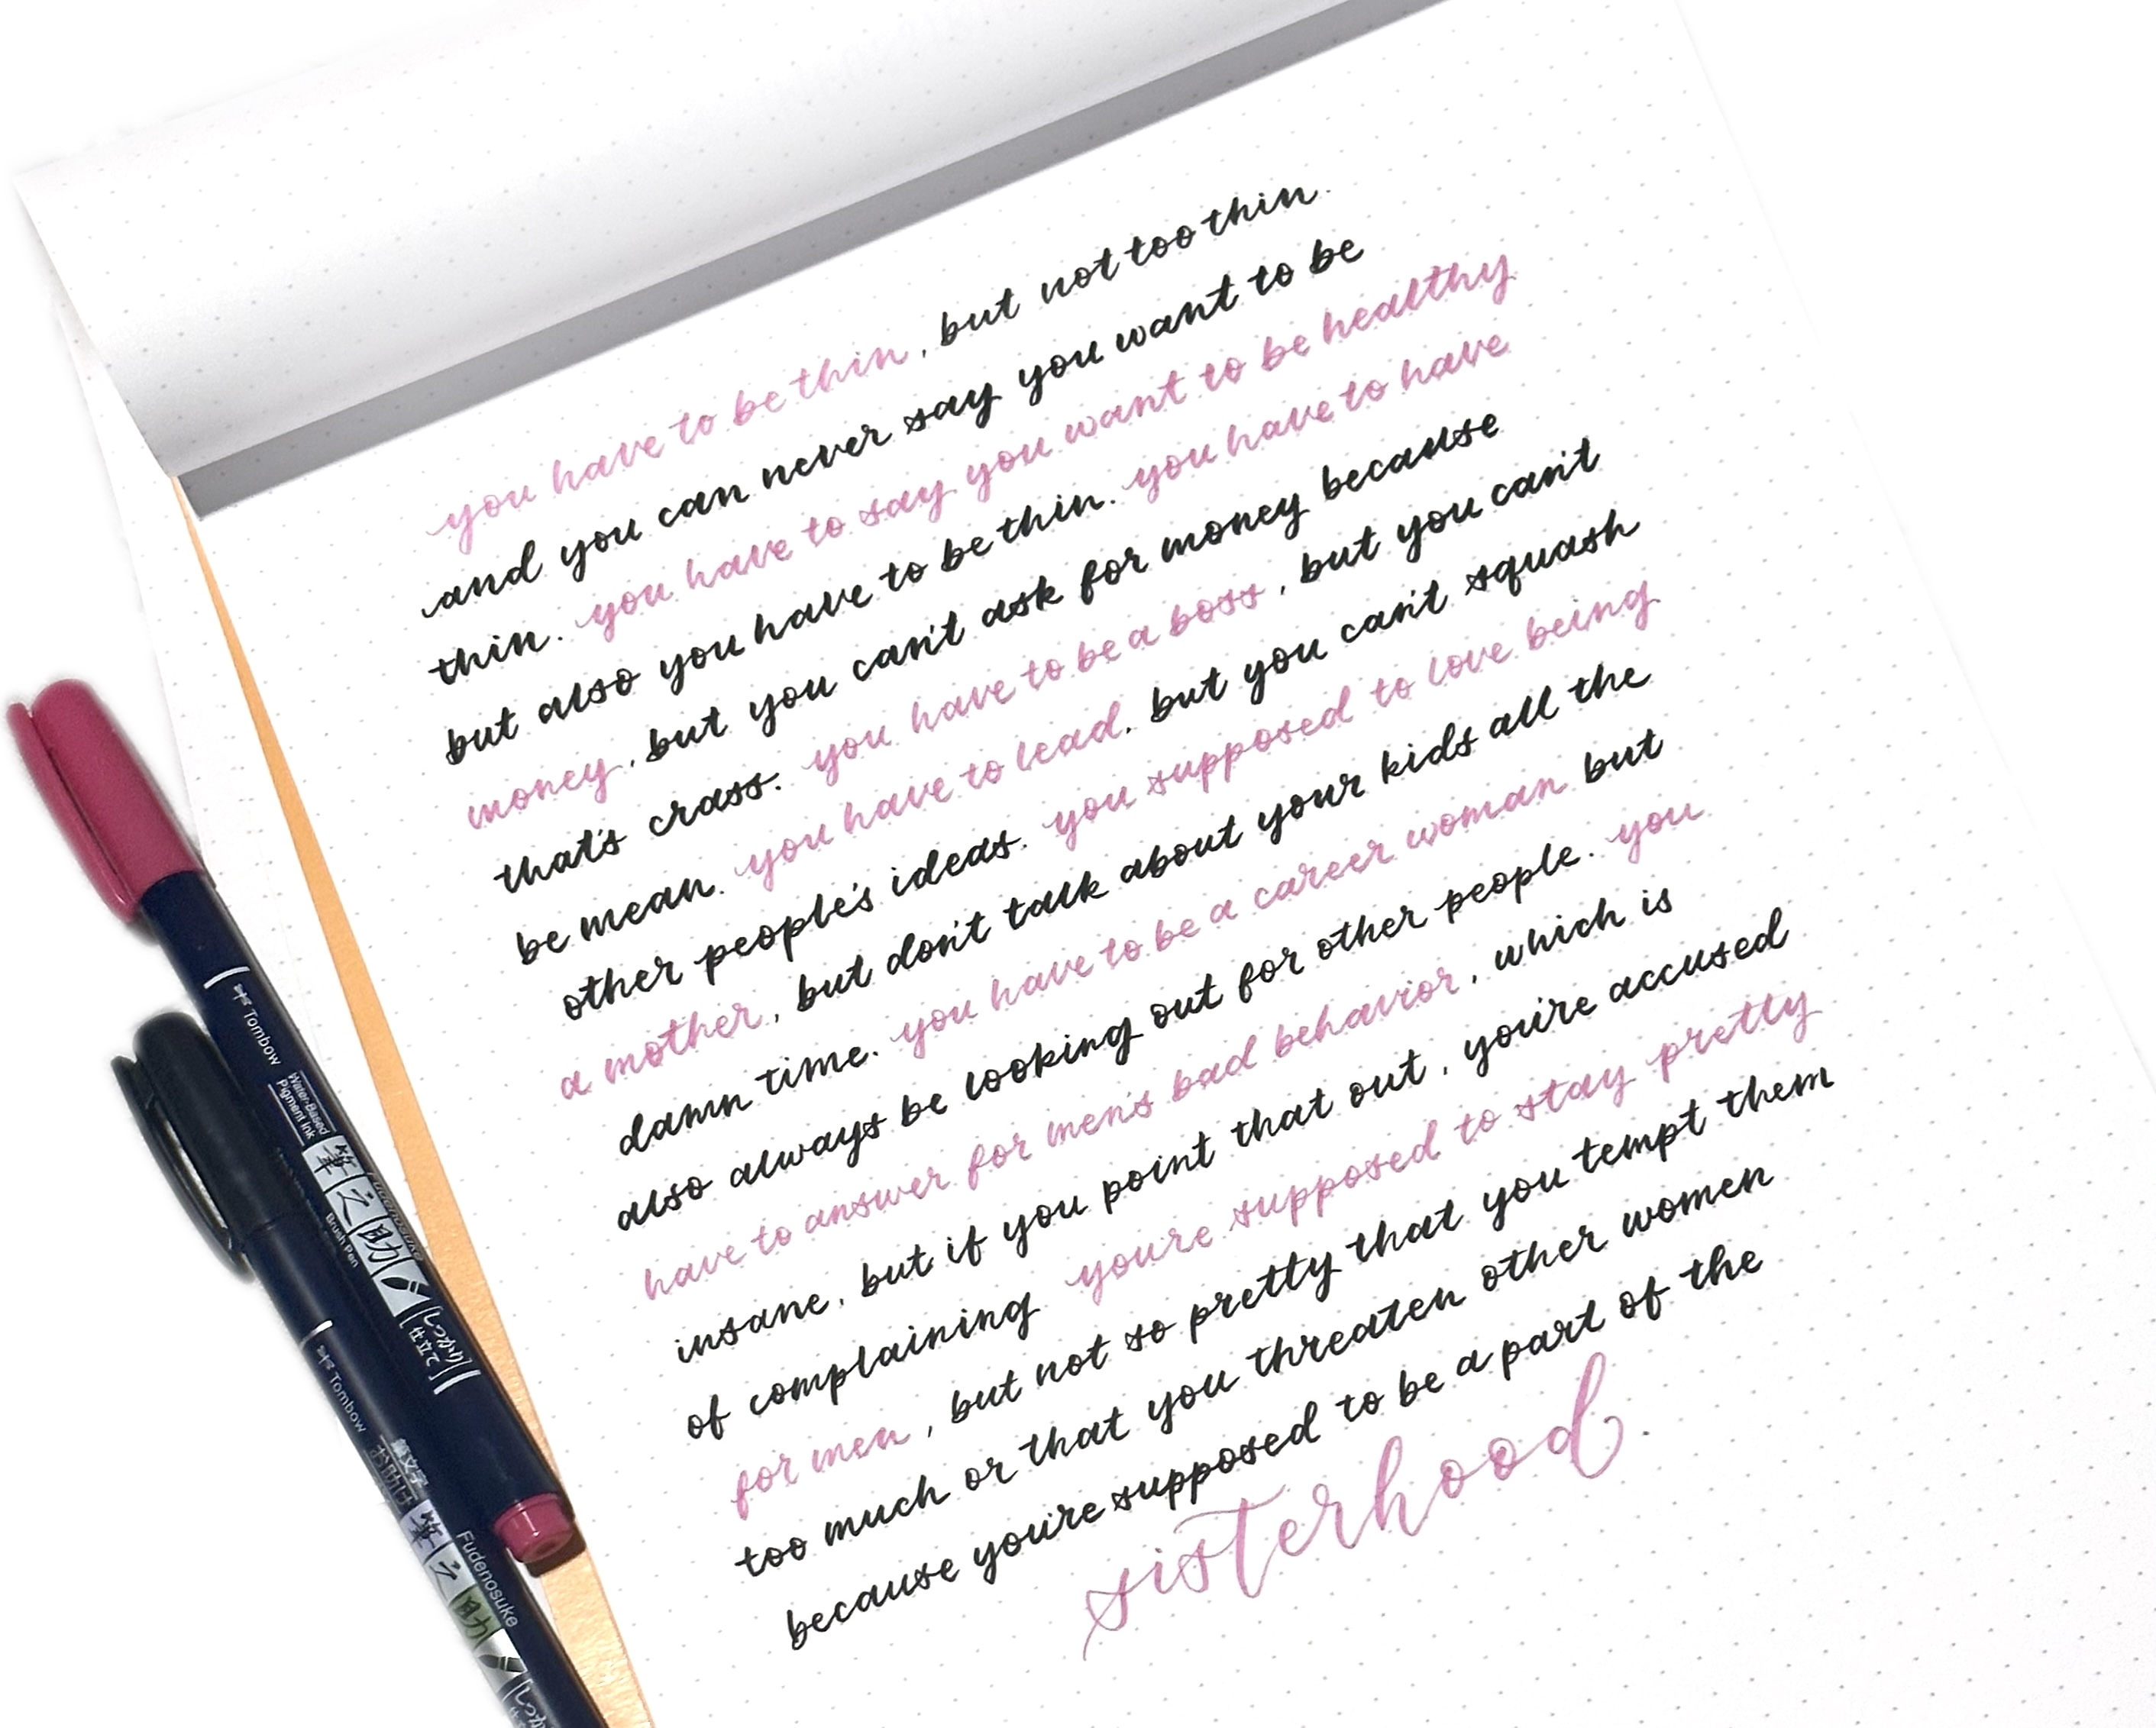 you have to be thin, but not too thin.
and you can never say you want to be
thin. you have to say you want to be healthy
but also you have to be thin. you have to have
money, but you can't ask for money because
that's crass. you have to be a boss, but you can't
be mean. you have to lead, but you can't squash
other people's ideas. you supposed to love being
a mother, but don't talk about your kids all the
damn time. you have to be a career woman but
also always be looking out for other people. you
have to answer for men's bad behavior, which is
insane, but if you point that out, you're accused
of complaining you're supposed to stay pretty
for men, but not so pretty that you tempt them
too much or that you threaten other women
because you're supposed to be a part of the
sisterhood.
Tombow
Water-Based
Pigment Ink
筆之助
Brush Pen
しっかり
仕立て
Tombow
筆之助
Fudenosuke